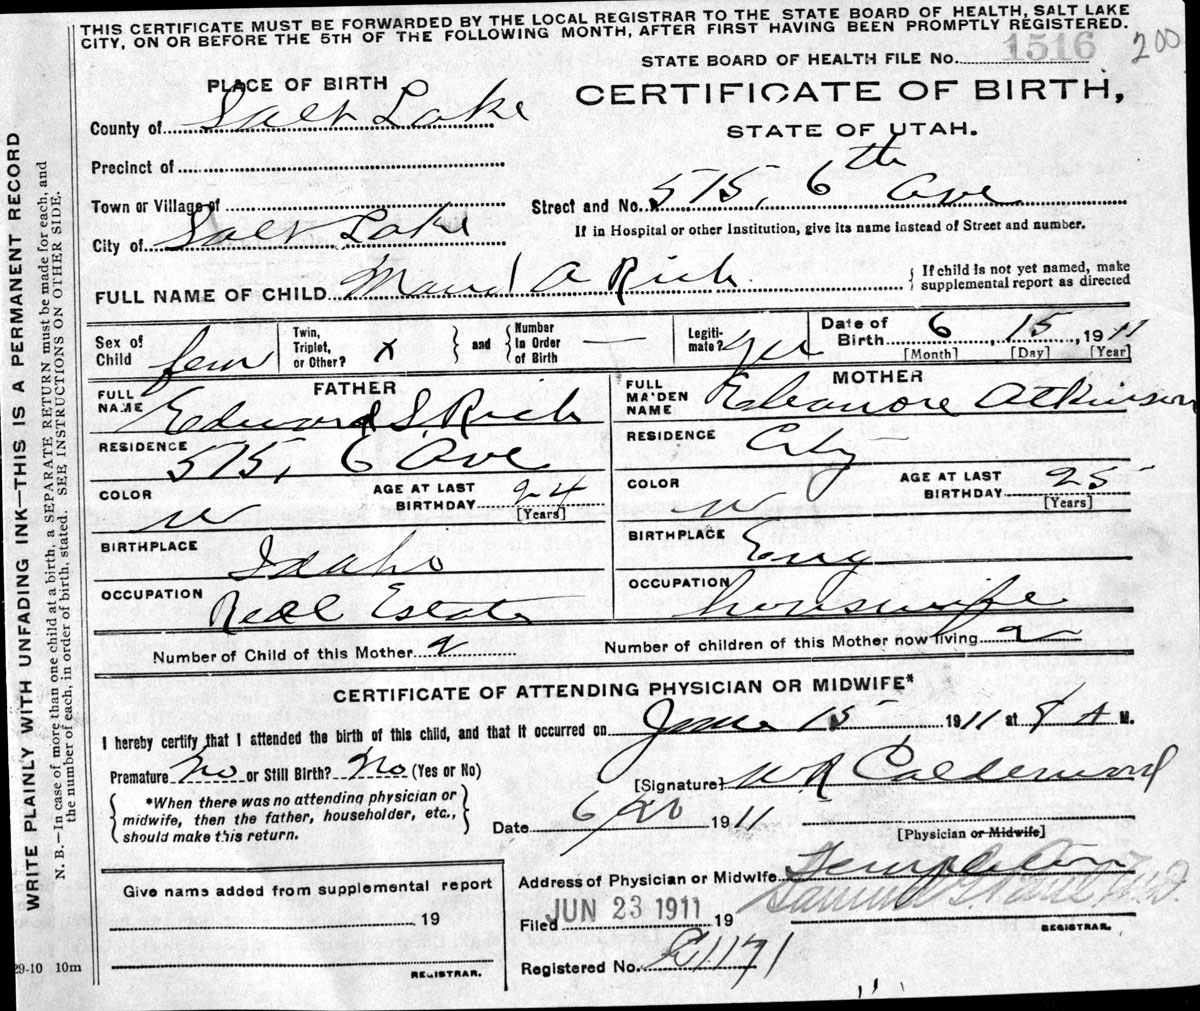 THIS CERTIFICATE MUST BE FORWARDED BY THE LOCAL REGISTRAR TO THE STATE BOARD OF HEALTH, SALT LAKE
CITY, ON OR BEFORE THE 5TH OF THE FOLLOWING MONTH, AFTER FIRST HAVING BEEN PROMPTLY REGISTERED.
200
STATE BOARD OF HEALTH FILE No. 1516
PLACE OF BIRTH
CERTIFICATE OF BIRTH,
STATE OF UTAH.
County of Salt Lake
Precinct of
Town or Village of
Street and No. 575, 6th Ave
City of Salt Lake
If in Hospital or other Institution, give its name instead of Street and number.
FULL NAME OF CHILD Maud A Rich
{ If child is not yet named, make
supplemental report as directed
Sex of Child fem
Twin, Triplet, or Other? x } and { Number in Order of Birth —
Legitimate? yes
Date of Birth 6, 15, 1911
[Month] [Day] [Year]
FATHER
FULL NAME Edward S. Rich
RESIDENCE 575, 6 Ave
COLOR W
AGE AT LAST BIRTHDAY 24
[Years]
BIRTHPLACE Idaho
OCCUPATION Real Estate
MOTHER
FULL MAIDEN NAME Eleanore Atkinson
RESIDENCE City
COLOR W
AGE AT LAST BIRTHDAY 25
[Years]
BIRTHPLACE Eng
OCCUPATION housewife
Number of Child of this Mother 2
Number of children of this Mother now living 2
CERTIFICATE OF ATTENDING PHYSICIAN OR MIDWIFE*
I hereby certify that I attended the birth of this child, and that it occurred on June 15, 1911 at 8 A M.
Premature No or Still Birth? No (Yes or No)
[Signature] W R Calderwood
{ *When there was no attending physician or
midwife, then the father, householder, etc.,
should make this return. }
Date 6/20 1911
[Physician or Midwife]
Address of Physician or Midwife Templeton
Give name added from supplemental report
19
REGISTRAR.
Filed JUN 23 1911 19
Samuel G. Paul M.D.
REGISTRAR.
Registered No. 1171
WRITE PLAINLY WITH UNFADING INK—THIS IS A PERMANENT RECORD
N. B.—In case of more than one child at a birth, a SEPARATE RETURN must be made for each, and
the number of each, in order of birth, stated. SEE INSTRUCTIONS ON OTHER SIDE.
29-10 10m